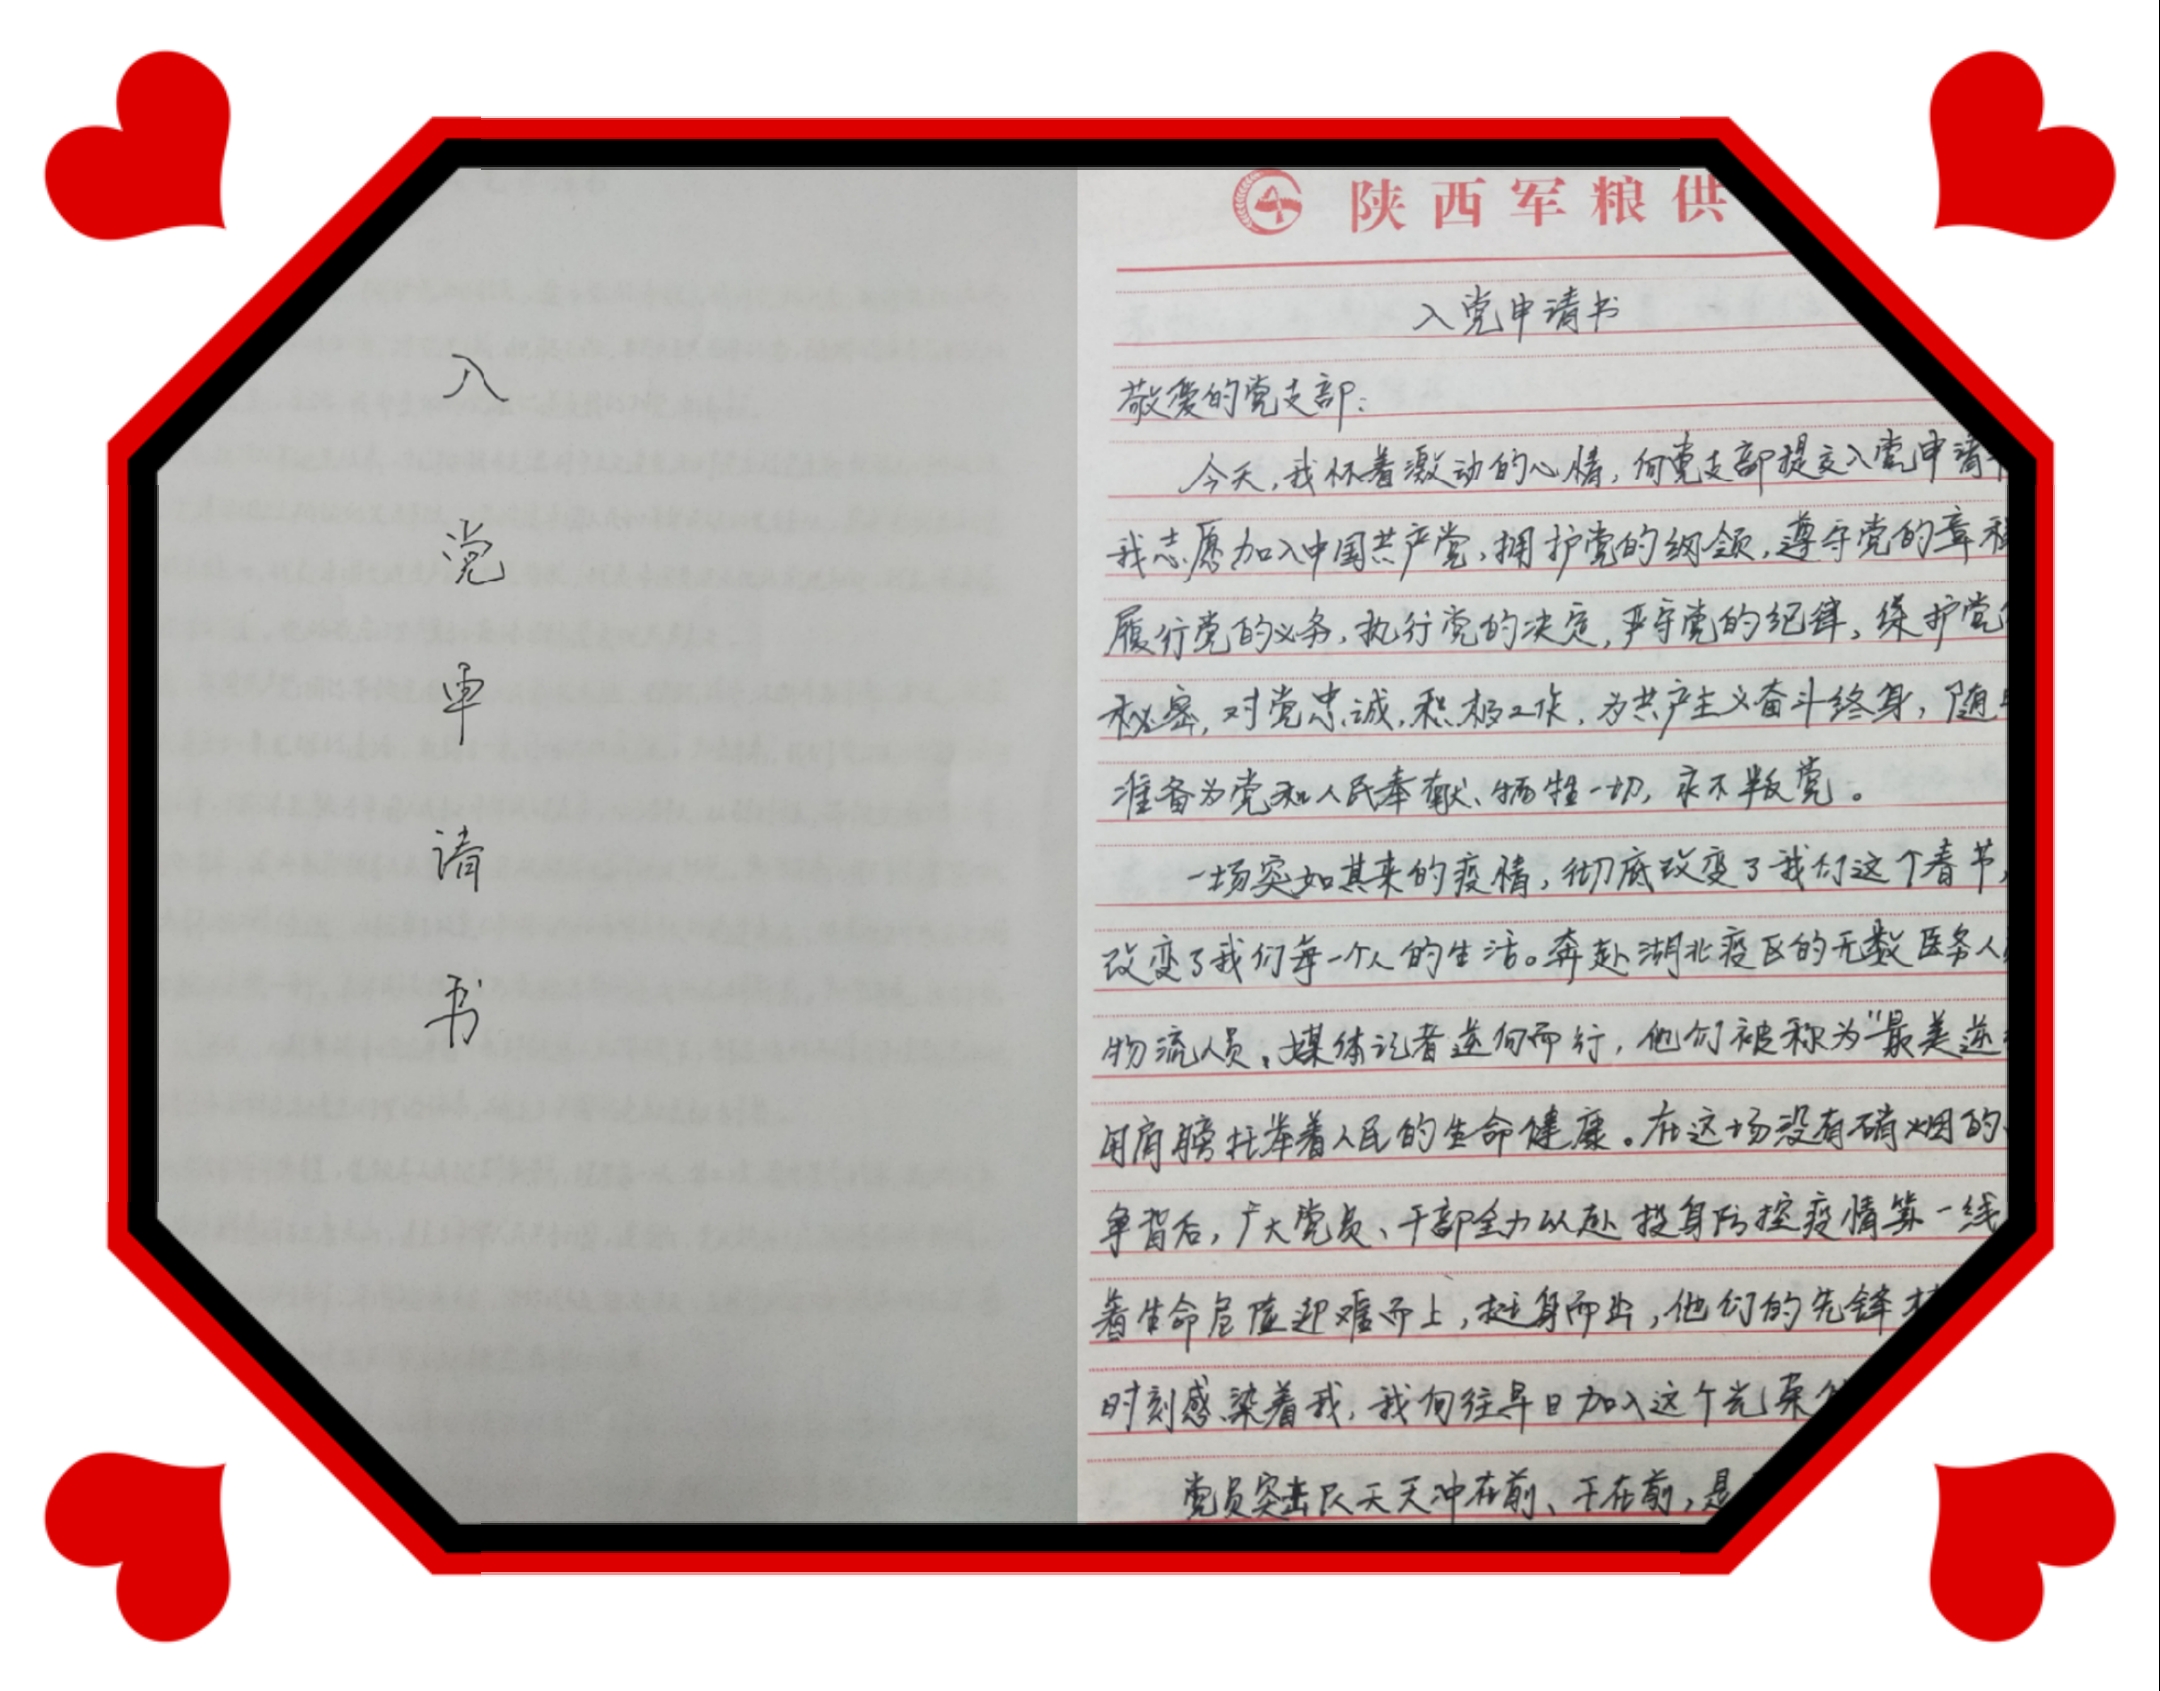 入
党
申
请
书
陕西军粮供
入党申请书
敬爱的党支部:
今天,我怀着激动的心情,向党支部提交入党申请
我志愿加入中国共产党,拥护党的纲领,遵守党的章程
履行党的义务,执行党的决定,严守党的纪律,保护党
秘密,对党忠诚,积极工作,为共产主义奋斗终身,随
准备为党和人民奉献、牺牲一切,永不判反党。
一场突如其来的疫情,彻底改变了我们这个春节,
改变了我们每一个人的生活。奔赴湖北疫区的无数医务人
物流人员、媒体记者逆向而行,他们被称为"最美逆
用肩膀托举着人民的生命健康。在这场没有硝烟的
争背后,广大党员、干部全力以赴投身防控疫情第一线
着生命危险迎难而上,挺身而出,他们的先锋
时刻感染着我,我向往早日加入这个光荣
党员突击队天天冲在前、干在前,是